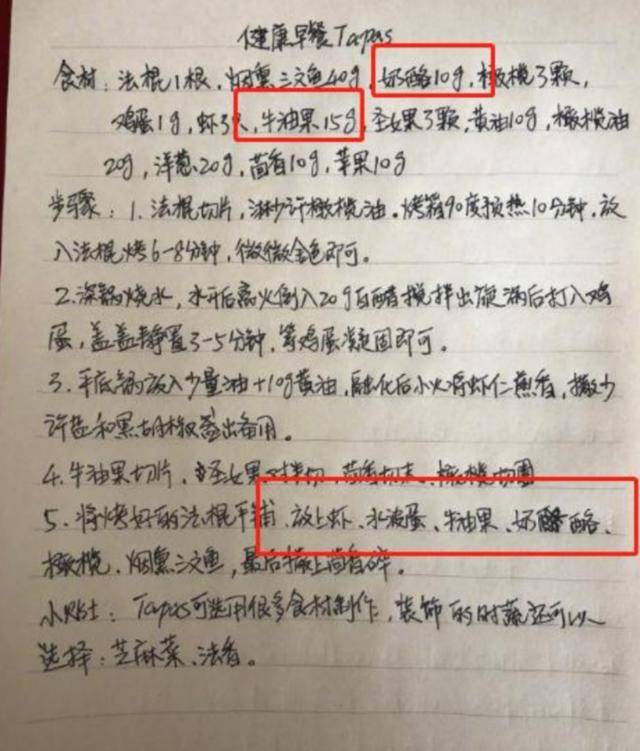 健康早餐Tapas
食材：法棍1根，烟熏三文鱼40g，奶酪10g，橄榄3颗，
鸡蛋1g，虾3只，牛油果15g，圣女果3颗，黄油10g，橄榄油
20g，洋葱20g，茴香10g，苹果10g
步骤：1. 法棍切片，淋少许橄榄油。烤箱90度预热10分钟，放
入法棍烤6-8分钟，微微金色即可。
2. 深锅烧水，水开后离火倒入20g白醋搅拌出旋涡后打入鸡
蛋，盖盖静置3-5分钟，等鸡蛋凝固即可。
3. 平底锅放入少量油+10g黄油，融化后小火将虾仁煎香，撒少
许盐和黑胡椒盛出备用。
4. 牛油果切片、圣女果对半切、茴香切末、橄榄切圈
5. 将烤好的法棍平铺、放上虾、水波蛋、牛油果、奶酪、
橄榄、烟熏三文鱼，最后撒上茴香碎。
小贴士：Tapas可选用很多食材制作，装饰的时蔬还可以
选择：芝麻菜、法香。